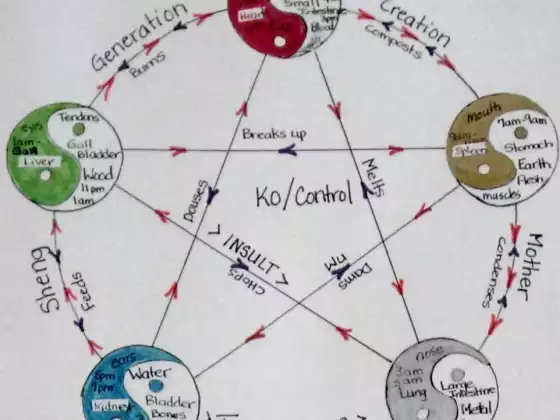 Heart
Small
Intestine
Blood
Generation
Burns
Creation
Composts
eyes
1am-
3am
Liver
Tendons
Gall
Bladder
Wood
11pm
1am
Breaks up
mouth
9am-
Spleen
7am-9am
Stomach
Earth
flesh
muscles
Douses
KO/Control
Melts
< INSULT >
Chops
Dams
Sheng
Feeds
Mother
Condenses
ears
5pm
7pm
Kidney
Water
Bladder
Bones
nose
3am
5am
Lung
Large
Intestine
Metal